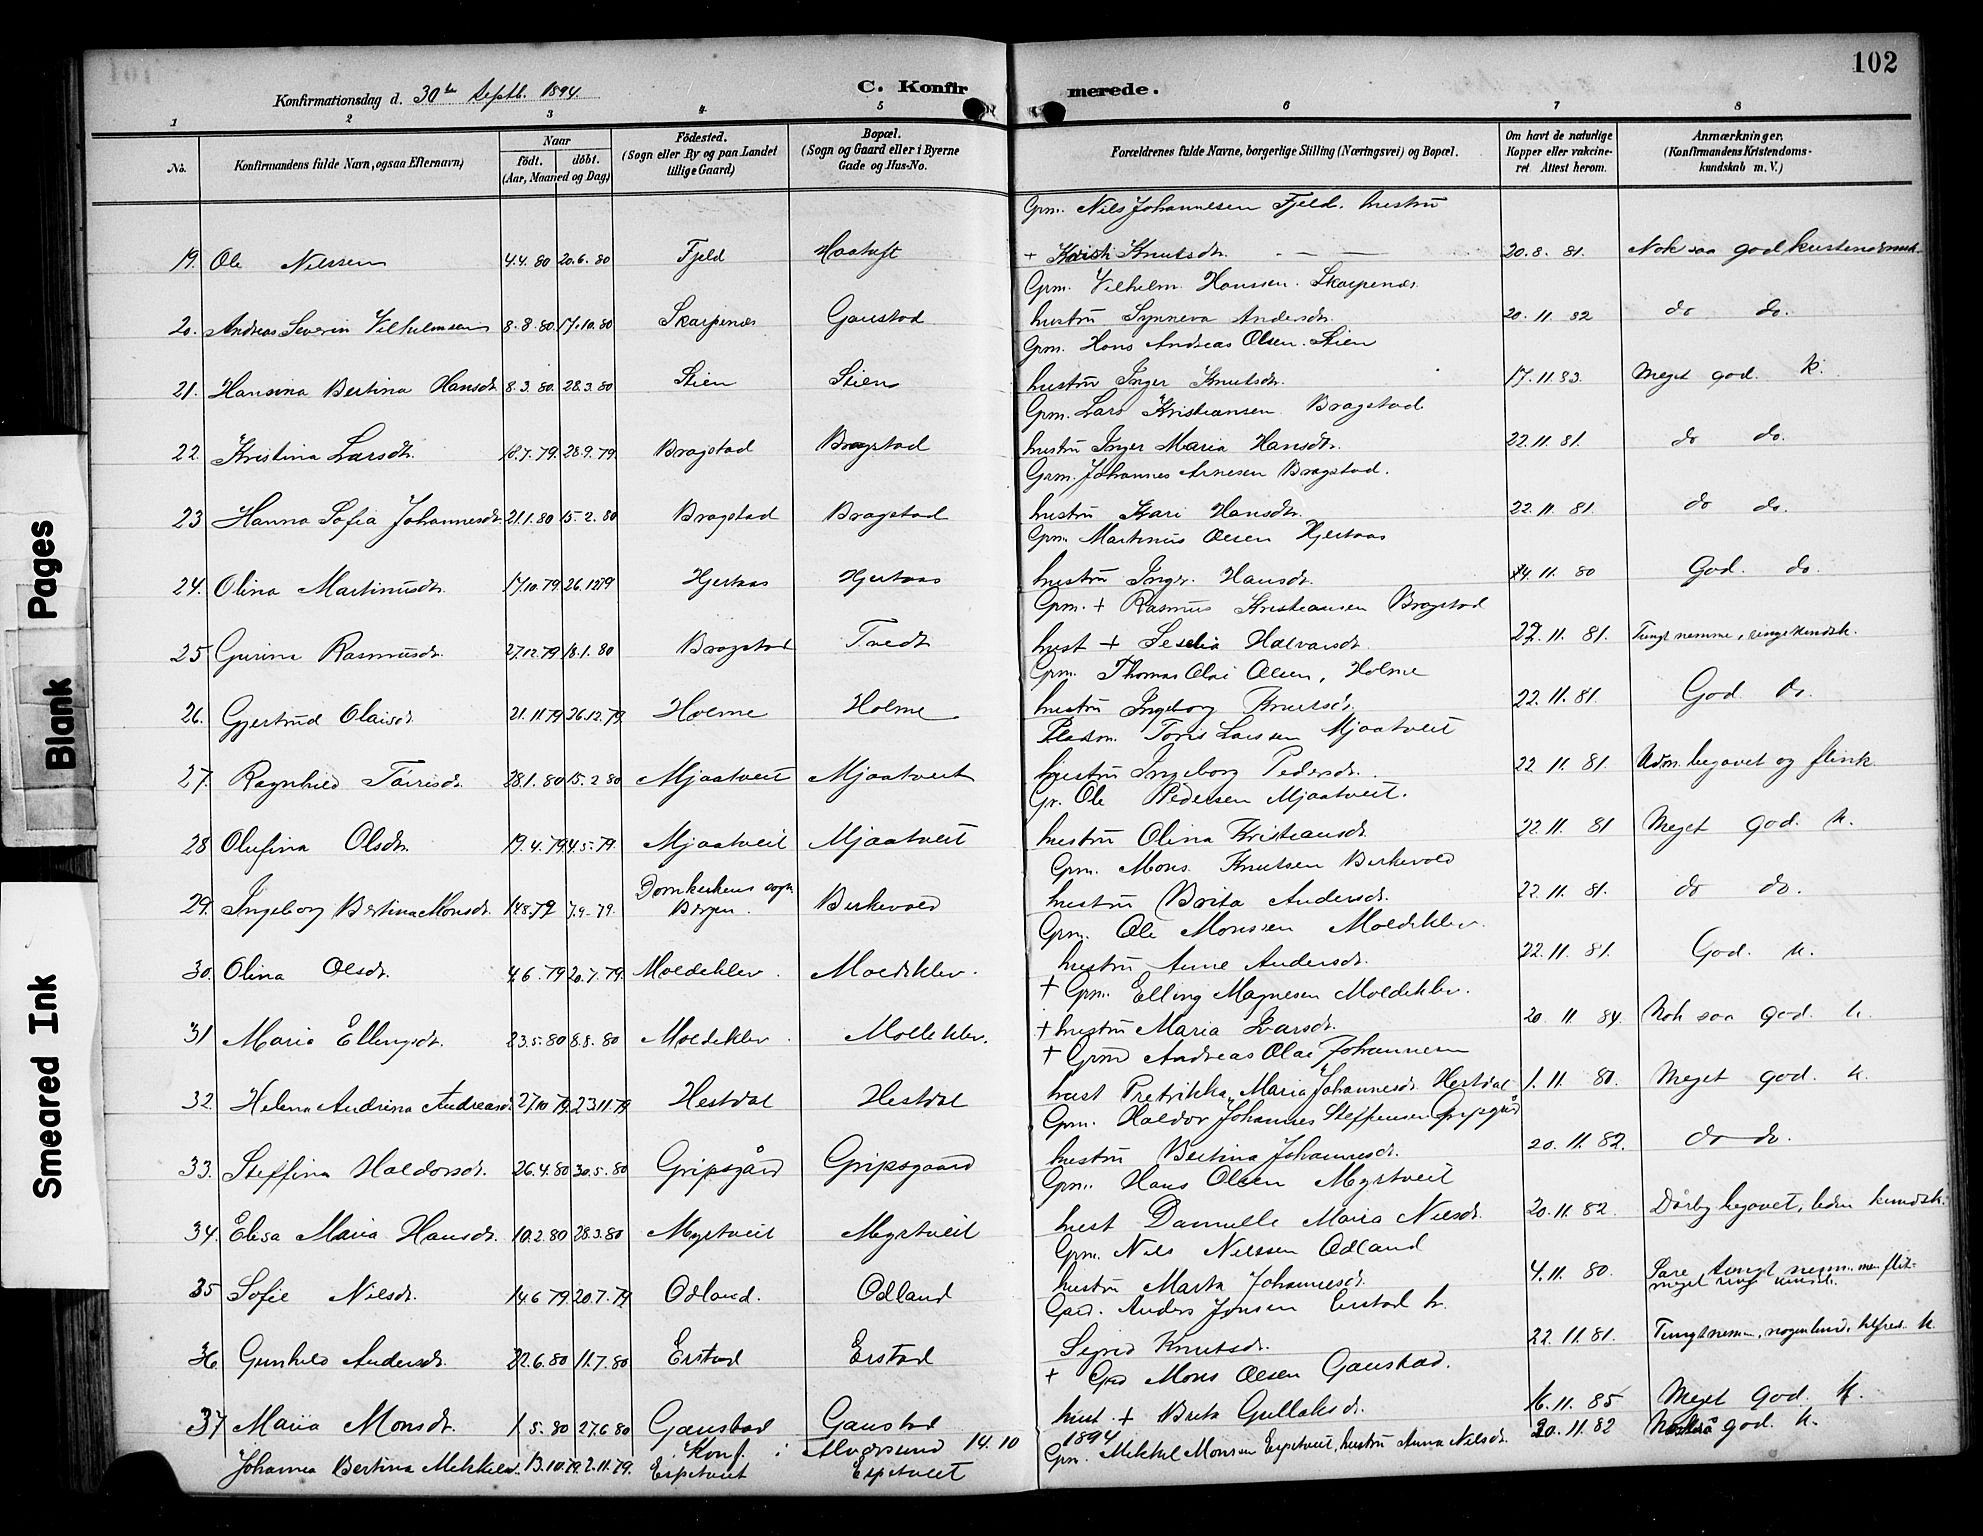 102
Konfirmationsdag d. 30te Septb. 1894.
C. Konfirmerede.
1 2 3 4 5 6 7 8
No.
Konfirmandens fulde Navn, ogsaa Efternavn)
Naar
födt. döbt.
(Aar, Maaned og Dag)
Födested.
(Sogn eller By og paa Landet
tillige Gaard)
Bopæl.
(Sogn og Gaard eller i Byerne
Gade og Hus-No.
Forældrenes fulde Navne, borgerlige Stilling (Næringsvei) og Bopæl.
Om havt de naturlige
Kopper eller vakcine-
ret Attest herom.
Anmærkninger.
(Konfirmandens Kristendoms-
kundskab m. V.)
Gpm. Nils Johannesen Fjeld. hustru
19. Ole Nilssen 4.4.80 20.6.80 Fjeld Haatuft + Knutsdr. 20.8.81. Nok saa god
Gpm. Vilhelm Hanssen. Skarpenæs
20. Andreas Severin Vilhelmsen 8.8.80 17.10.80 Skarpenæs Gaustad hustru Synneva Andersdr. 20.11.82 do do.
Gpm. Hans Andreas Olsen. Stien
21. Hansina Bertina Hansdr. 8.3.80. 28.3.80 Stien Stien hustru Inger Knutsdr. 17.11.83. Meget god. k.
Gpm. Lars Kristiansen Bragstad
22. Kristina Larsdr. 18.7.79. 28.9.79 Bragstad Bragstad hustru Inger Maria Hansdr. 22.11.81. do do.
Gpm. Johannes Arnesen Bragstad.
23 Hanna Sofia Johannesdr. 21.1.80 15.2.80 Bragstad Bragstad hustru Kari Hansdr. 22.11.81. do do.
Gpm. Martinus Olsen Hjertaas
24. Olina Martinusdr. 17.10.79 26.12.79 Hjertaas Hjertaas hustru Inger. Hansdr. 14.11.80 God. do.
Gpm. + Rasmus Kristiansen Bragstad
25 Gurina Rasmusdr. 27.12.79 18.1.80 Bragstad Tvedt hust + Halvarsdr. 22.11.81. Tungt nemme, ringe kundsk.
Gpm. Thomas Olai Olsen, Holme
26. Gjertrud Olaisdr. 21.11.79 26.12.79. Holme Holme hustru Ingeborg Knutsdr. 22.11.81. God do.
Pladsm. Toris Larssen Mjaatveit
27. Ragnhild Törrisdr. 28.1.80 15.2.80 Mjaatveit Mjaatveit hustru Ingeborg Pedersdr. 22.11.81. Udm. begavet og flink.
Gr. Ole Pedersen Mjaatveit.
28 Olufina Olsdr. 19.4.79 4.5.79. Mjaatveit Mjaatveit hustru Olina Kristiansdr. 22.11.81 Meget god. k.
Gpm. Mons Knutsen Birkevold
29. Ingeborg Bertina Monsdr. 14.8.79 7.9.79. Domkirkens sogn Bergen. Birkevold hustru Brita Andersdr. 22.11.81. do do.
Gpm. Ole Monssen Moldeklev.
30. Olina Olsdr. 4.6.79 20.7.79. Moldeklev. Moldeklev. hustru Anne Andersdr. 22.11.81. God. k.
+ Gpm. Elling Magnesen Moldeklev.
31 Maria Ellingsdr. 23.5.80 8.8.80 Moldeklev. Moldeklev. + hustru Maria Ivarsdr. 20.11.84. Nok saa god. k.
+ Grmd Andreas Olai Johannesen
32. Helena Andrina Andreasdr. 27.10.79 23.11.79 Hestdal Hestdal hust Fredrikke Maria Johannesdr. Hestdal 1.11.81. Meget god. k.
Gpm. Haldor Johannes Steffensen Gripsgård
33. Steffina Haldorsdr. 26.4.80 30.5.80 Gripsgård Gripsgaard hustru Bertina Johannesdr. 20.11.82. do do.
Gpm. Hans Olsen Myrtveit
34. Elisa Maria Hansdr. 10.2.80 28.3.80 Myrtveit Myrtveit hust Danielle Maria Nilsdr. 20.11.82. begavet, kundsk.
Gpm. Nils Nilssen Odland
35 Sofie Nilsdr. 14.6.79 20.7.79 Odland. Odland hustru Marta Johannesdr. 4.11.80. tungt nem. men
Anders Jonsen Erstad h.
36. Gunhild Andersdr. 22.6.80 11.7.80 Erstad Erstad Sigrid Knutsdr. 22.11.81. Tungt nemm, k
+ Gpd Mons Olsen Gaustad.
37 Maria Monsdr. 1.5.80 27.6.80 Gaustad Gaustad hust. + Brita Gullaksdr. 16.11.85 Meget god. k.
Konf. i Alversund 14.10 1894
Johanna Bertina Mikkelsdr. 13.10.79. 2.11.79. Espetveit Espetveit Gpm. Mikkel Monsen Espetveit, hustru Anna Nilsdr. 20.11.82 god. k.
Blank Pages
Smeared Ink